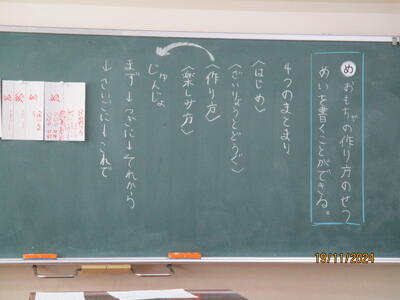 め おもちゃの作り方のせつ
めいを書くことができる。
4つのまとまり
〈はじめ〉
〈ざいりょうとどうぐ〉
〈作り方〉
〈楽しみ方〉
じゅんじょ
まず→つぎに→それから
→さいごに→これで
19/11/2024